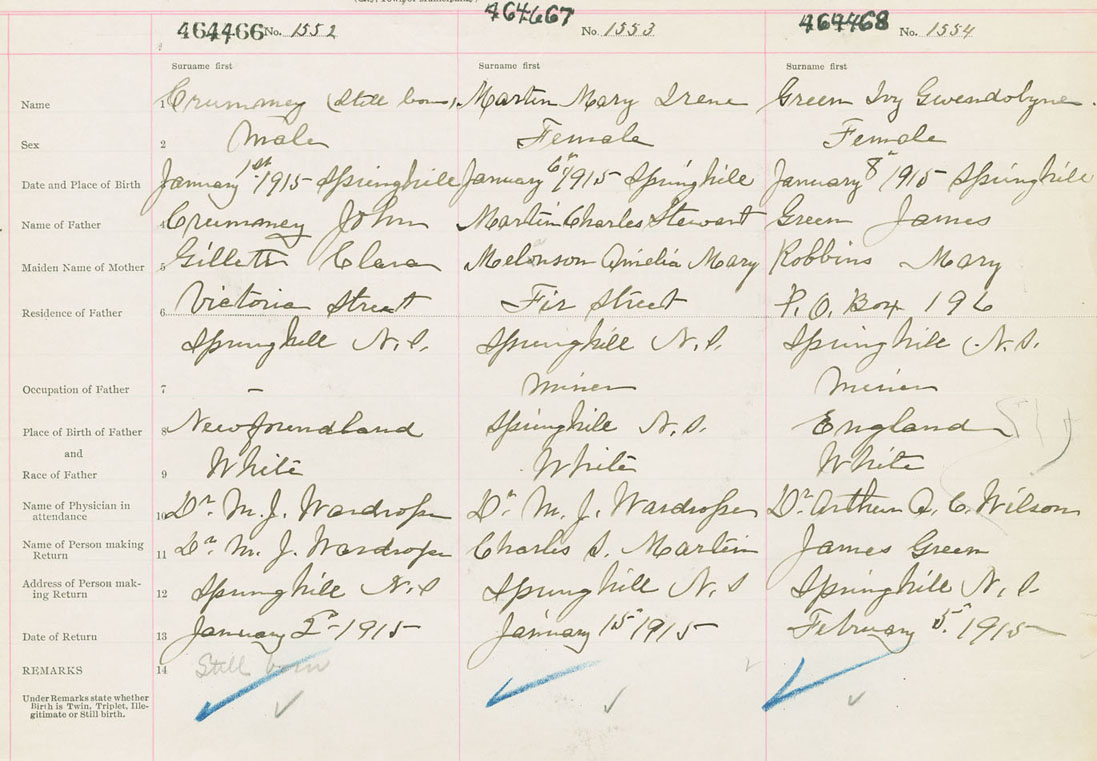 464466 No. 1552 464667 No. 1553 464468 No. 1554
Surname first Surname first Surname first
Name 1 Crummey (Still born) Martin Mary Irene Green Ivy Gwendolyne.
Sex 2 Male Female Female
Date and Place of Birth January 1st 1915 Springhill January 6th 1915 Springhill January 8th 1915 Springhill
Name of Father 4 Crummey John Martin Charles Stewart Green James
Maiden Name of Mother 5 Gillett Clara Melonson Amelia Mary Robbins Mary
Residence of Father 6 Victoria Street Fir Street P.O. Box 196
Springhill N.S. Springhill N.S. Springhill N.S.
Occupation of Father 7 – Miner Miner
Place of Birth of Father 8 Newfoundland Springhill N.S. England
and
Race of Father 9 White White White
Name of Physician in
attendance 10 Dr. M. J. Wardrope Dr. M. J. Wardrope Dr. Arthur A. C. Wilson
Name of Person making
Return 11 Dr. M. J. Wardrope Charles S. Martin James Green
Address of Person mak-
ing Return 12 Springhill N.S Springhill N.S Springhill N.S.
Date of Return 13 January 2nd 1915 January 15th 1915 February 5th 1915
REMARKS 14 Still born
Under Remarks state whether
Birth is Twin, Triplet, Ille-
gitimate or Still birth.